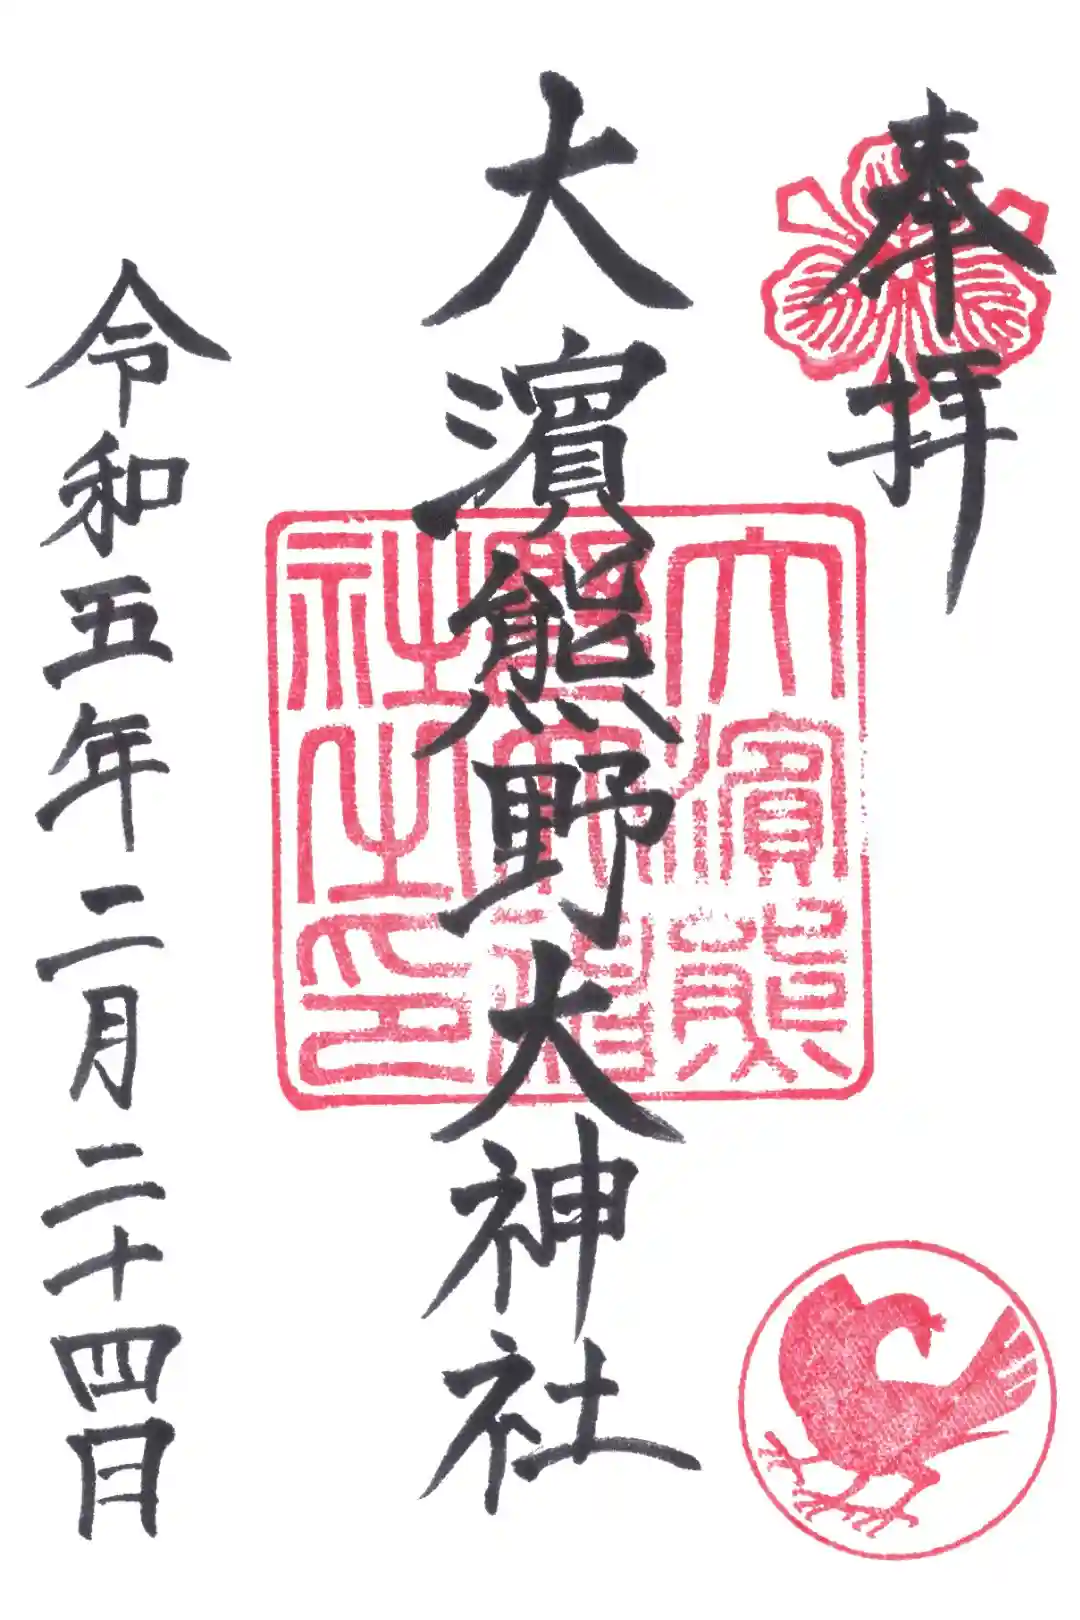 奉拝
大濱熊野大神社
令和五年二月二十四日
大濱熊
社之印